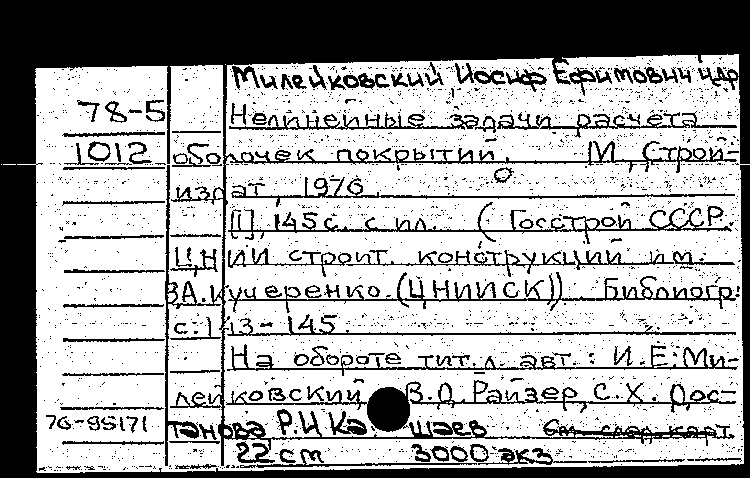 Милейковский Иосиф Ефимович и др
78-5 Нелинейные задачи расчета
1012 оболочек покрытий. М, Строй-
издат, 1976.
[I], 145 с. с ил. (Госстрой СССР.
ЦНИИ строит. конструкций им.
В.А. Кучеренко. (ЦНИИСК)) Библиогр:
с: 143-145.
На обороте тит. л. авт.: И.Е. Ми-
лейковский, В.Д. Райзер, С.Х. Дос-
76-95171 танова Р.И Ка шаев См. след. карт.
22 см 3000 экз